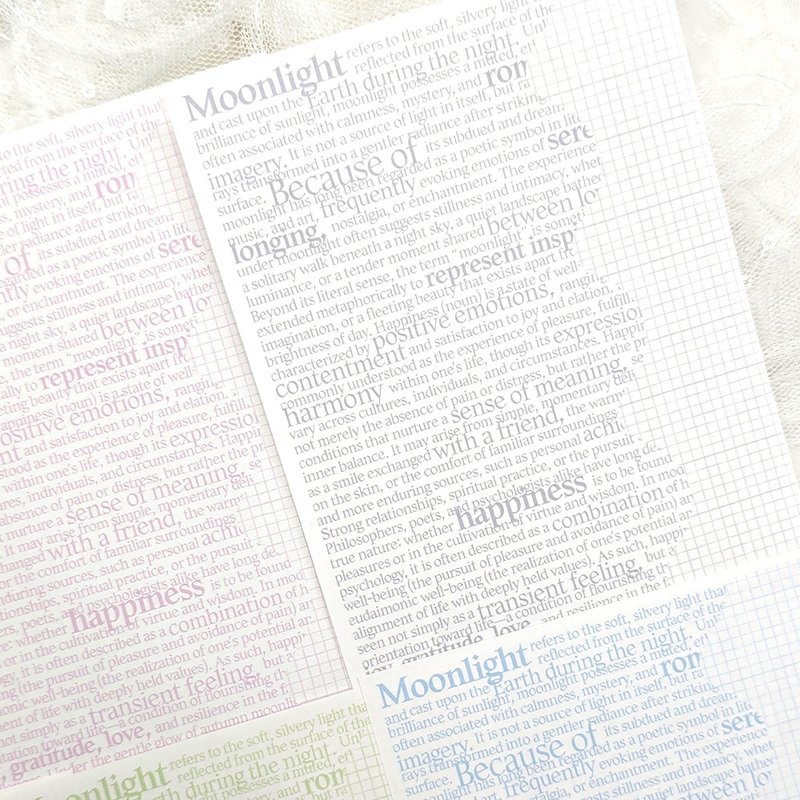 Moonlight refers to the soft, silvery light that
reflected from the surface of the
and cast upon the Earth during the night.
brilliance of sunlight, moonlight possesses a muted,
often associated with calmness, mystery, and
imagery. It is not a source of light in itself, but
rays transformed into a gentler radiance after striking
surface. Because of its subdued and
moonlight has long been regarded as a poetic symbol in
music, and art, frequently evoking emotions of
longing, nostalgia, or enchantment. The experience
under moonlight often suggests stillness and intimacy,
a solitary walk beneath a night sky, a quiet landscape
luminance, or a tender moment shared between
Beyond its literal sense, the term "moonlight" is
extended metaphorically to represent
imagination, or a fleeting beauty that exists apart
brightness of day. Happiness (noun) is a state of well-
characterized by positive emotions,
contentment and satisfaction to joy and elation.
commonly understood as the experience of pleasure,
harmony within one's life, though its
vary across cultures, individuals, and circumstances.
not merely the absence of pain or distress, but rather the
conditions that nurture a sense of meaning,
inner balance. It may arise from simple, momentary
as a smile exchanged with a friend, the
on the skin, or the comfort of familiar surroundings
and more enduring sources, such as personal
Strong relationships, spiritual practice, or the pursuit
Philosophers, poets, and psychologists alike have long
true nature: whether happiness is to be found
pleasures or in the cultivation of virtue and wisdom. In
psychology, it is often described as a combination of
well-being (the pursuit of pleasure and avoidance of pain)
eudaimonic well-being (the realization of one's potential
alignment of life with deeply held values). As such,
seen not simply as a transient feeling, but a
orientation toward life—a condition of flourishing
joy, gratitude, love, and resilience in the
refers to the soft, silvery light that
the surface of the
during the night.
possesses a muted,
mystery, and
of light in itself, but
radiance after striking
of its subdued and
regarded as a poetic symbol in
evoking emotions of
or enchantment. The experience
suggests stillness and intimacy,
night sky, a quiet landscape
moment shared between
the term "moonlight" is
to represent
beauty that exists apart
Happiness (noun) is a state of well-
positive emotions,
and satisfaction to joy and elation.
as the experience of pleasure,
within one's life, though its
individuals, and circumstances.
absence of pain or distress, but rather the
nurture a sense of meaning,
It may arise from simple, momentary
with a friend, the
or the comfort of familiar surroundings
enduring sources, such as personal
spiritual practice, or the pursuit
poets, and psychologists alike have long
whether happiness is to be found
or in the cultivation of virtue and wisdom. In
it is often described as a combination of
(the pursuit of pleasure and avoidance of pain)
well-being (the realization of one's potential
of life with deeply held values). As such,
not simply as a transient feeling, but a
toward life—a condition of flourishing
gratitude, love, and resilience in the
Under the gentle glow of autumn
Moonlight refers to the soft, silvery light that
reflected from the surface of the
Earth during the night.
Moonlight refers to the soft, silvery light
reflected from the surface of the
and cast upon the Earth during the night.
brilliance of sunlight, moonlight possesses a muted,
often associated with calmness, mystery, and
imagery. It is not a source of light in itself, but
rays transformed into a gentler radiance after striking
surface. Because of its subdued and
moonlight has long been regarded as a poetic symbol in
music, and art, frequently evoking emotions of
or enchantment. The experience
suggests stillness and intimacy,